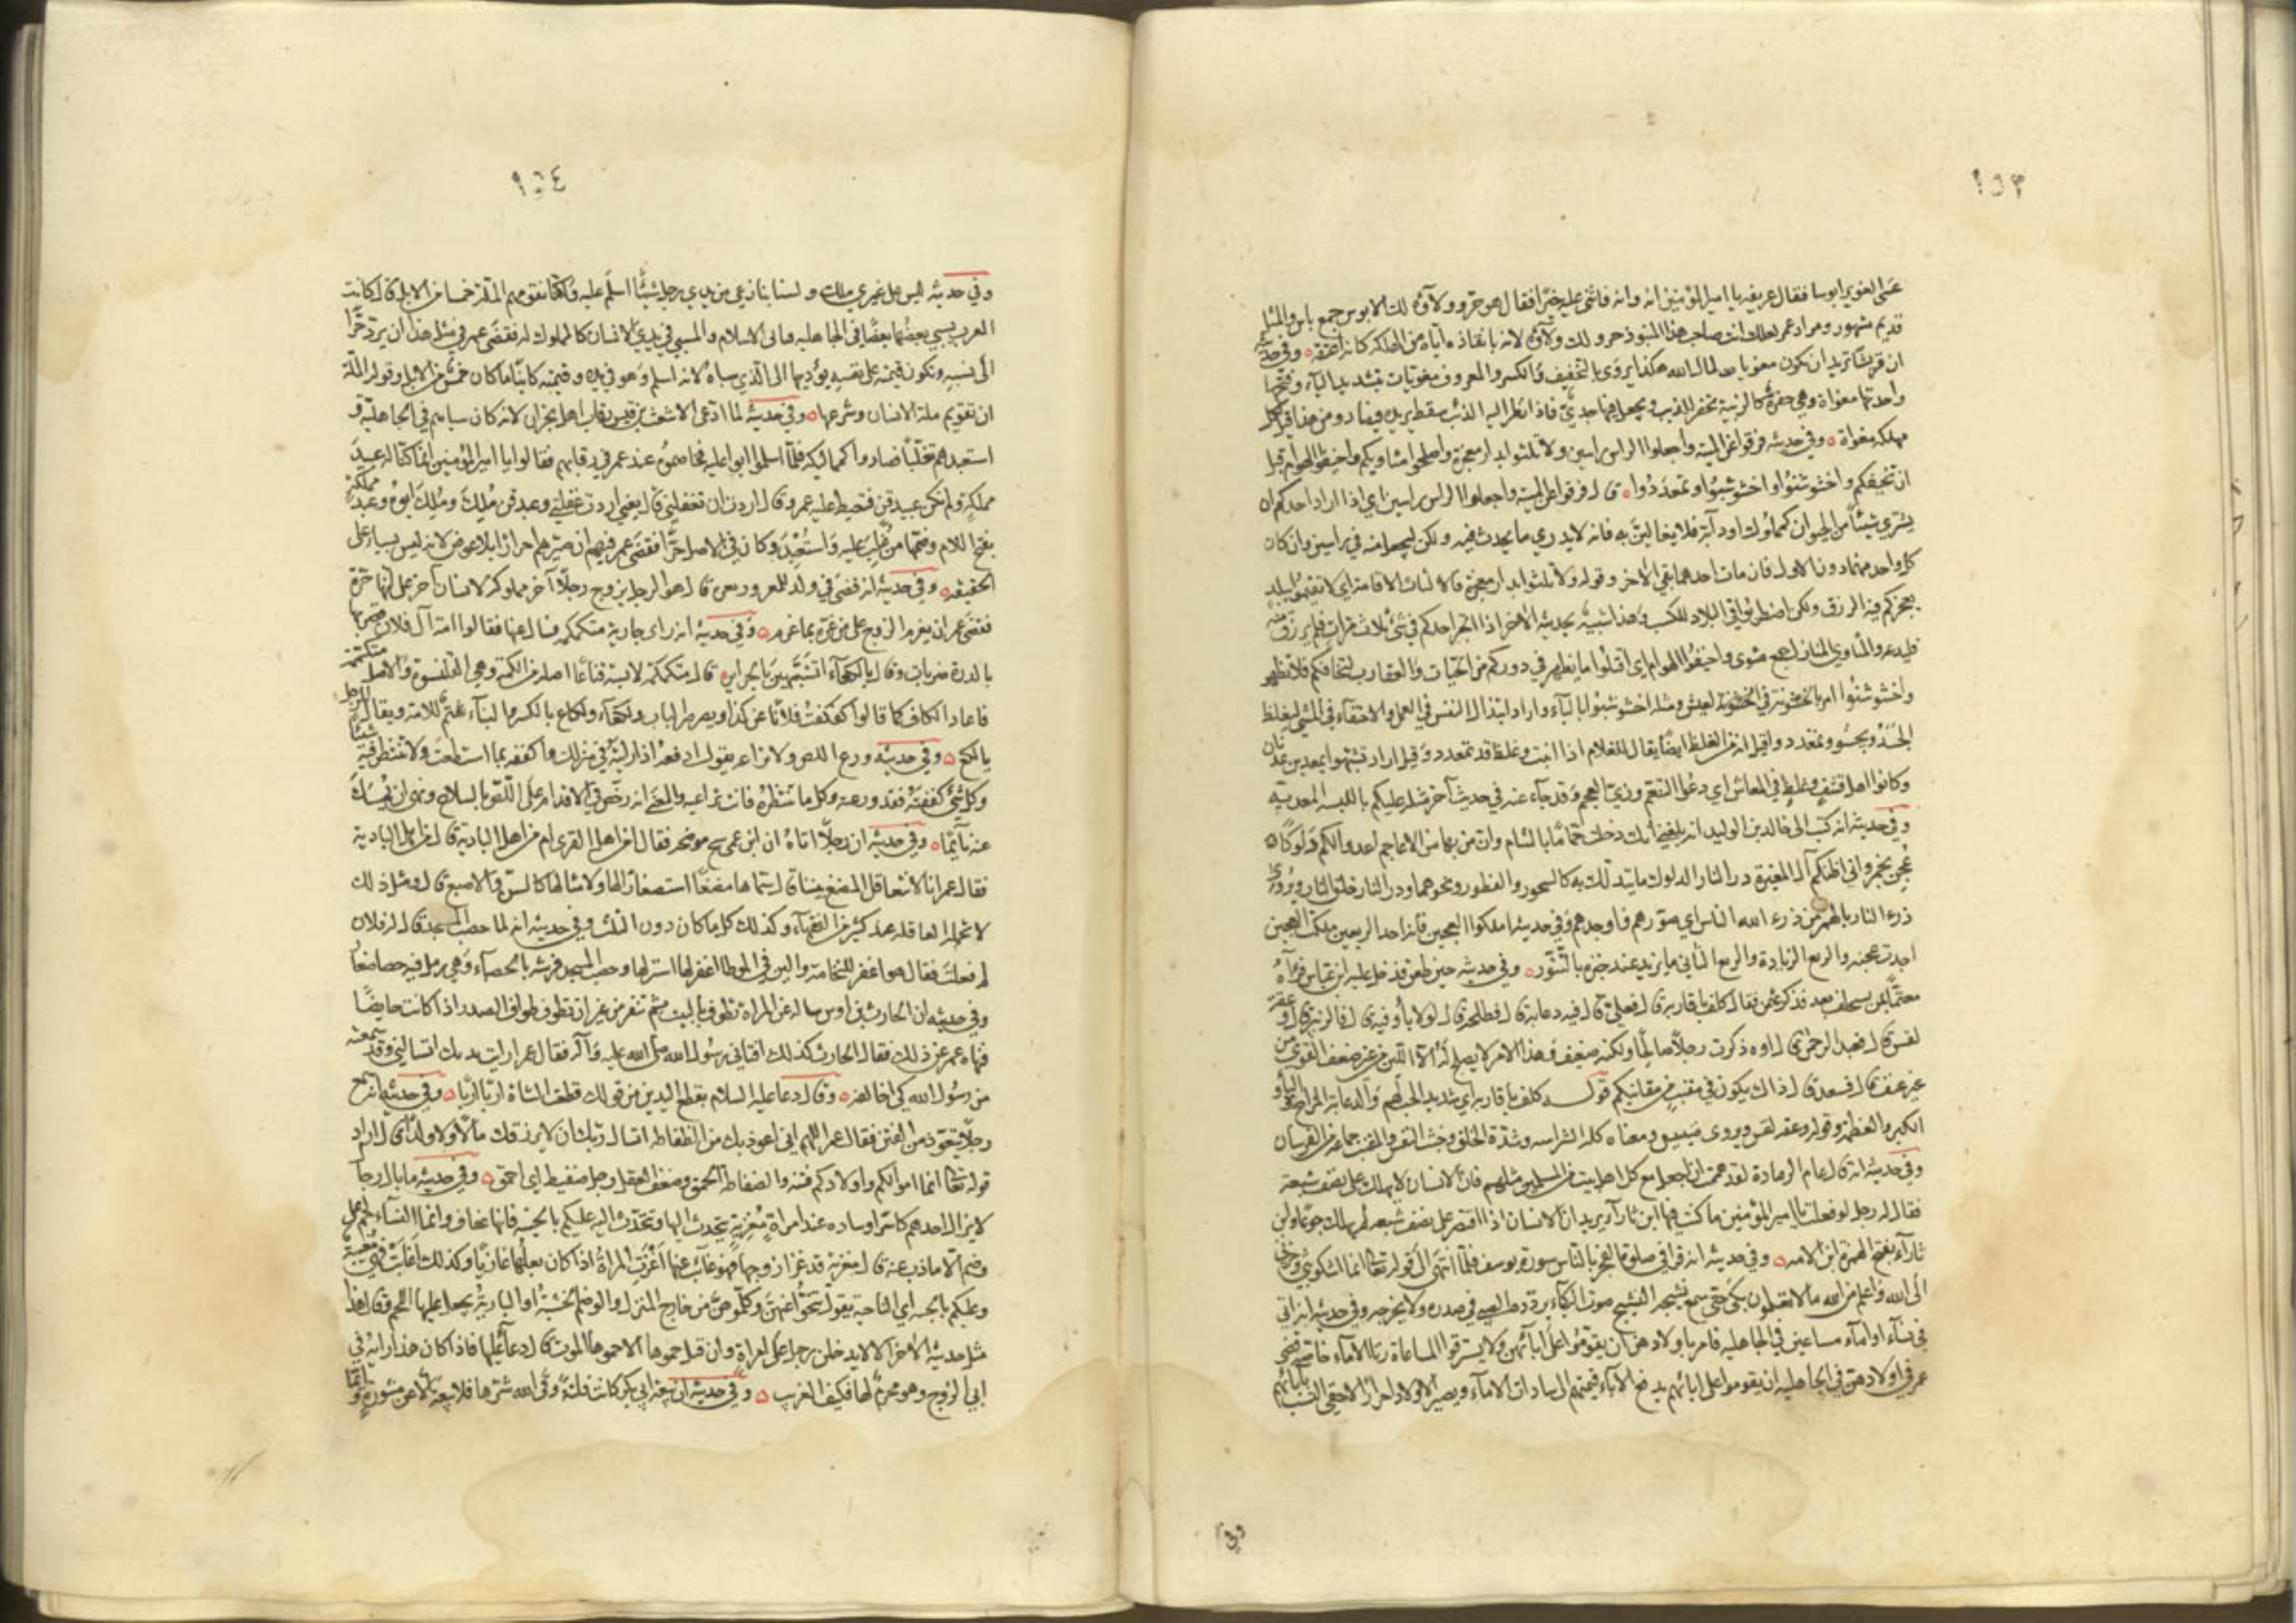 ١٥٣
عسى الغوير ابوسا فقال عريفه يا امير المؤمنين انه وانه فاثنى عليه خيرا فقال هو حر وولاؤه لك الابوس جمع باس والمثل
قديم مشهور ومراد عمر لعلك انت صاحب هذا المنبوذ حر ولك ولاؤه لانه بانقاذه اياه من الهلكة كانه اعتقه وفي حديثه
ان قريشا تريد ان تكون مغويات لمال الله هكذا يروى بالتخفيف والكسر والمعروف مغويات بتشديد الياء وفتحها
واحدتها مغواة وهي حفرة كالزبية تحفر للذيب ويجعل فيها جدي فاذا نظر اليه الذئب سقط يريده فيصاد ومن هذا قيل لكل
مهلكة مغواة وفي حديثه فرقوا عن المنية واجعلوا الراس راسين ولا تلثوا بدار معجزة واصلحوا مثاويكم واخيفوا الهوام قبل
ان تخيفكم واخشوشنوا واخشوشبوا وتمعددوا قال فرقوا عن المنية واجعلوا الراس راسين اي اذا اراد احدكم ان
يشتري شيئا من الحيوان كمملوك او دابة فلا يغالين به فانه لا يدري ما يحدث فيه ولكن ليجعل ثمنه في راسين وان كان
كل واحد منهما دون الاول فان مات احدهما بقي الاخر وقوله ولا تلثوا بدار معجزة فالالثاث الاقامة اي لا تقيموا ببلد
يعجزكم فيه الرزق ولكن اضطربوا في البلاد للكسب وهذا شبيه بحديثه الاخر اذا اتجر احدكم في شئ ثلاث مرات فلم يرزق منه
فليدعه والمثاوي المنازل جمع مثوى واخيفوا الهوام اي اقتلوا ما يظهر في دوركم من الحيات والعقارب لتخافكم فلا تظهر
واخشوشنوا امر بالخشونة في العيش ومثله اخشوشبوا بالباء واراد ابتذال النفس في العمل والاحتفاء في المشي ليغلظ
الجسد ويجسو وتمعددوا قيل انه من الغلظ ايضا يقال للغلام اذا انبت وغلظ قد تمعدد وقيل اراد تشبهوا بمعد بن عدنان
وكانوا اهل قشف وغلظ في المعاش اي دعوا التنعم وزي العجم وقد جاء عنه في حديث آخر مثله عليكم باللبسة المعدية
وفي حديثه انه كتب الى خالد بن الوليد انه بلغني انك دخلت حماما بالشام وان من بها من الاعاجم اعدوا لكم دلوكا
عجن بخمر واني اظنكم آل المغيرة ذرء النار الدلوك ما يتدلك به كالسحور والفطور ونحوهما وذرء النار خلق النار ويروى
ذرء النار بالهمز من ذرء الله الناس اي صورهم واوجدهم وفي حديثه املكوا العجين فانه احد الريعين ملكت العجين
اجدت عجنه والريع الزيادة والريع الثاني ما يزيد عند خبزه بالتنور وفي حديثه حين طعن فدخل عليه ابن عباس فرآه
مغتما بمن يستخلف بعده فذكر عثمن فقال كلف باقاربه قال فعلي قال فيه دعابة قال فطلحة قال لولا بأو فيه قال فالزبير قال وعقة
لقس قال فعبد الرحمن قال اوه ذكرت رجلا صالحا ولكنه ضعيف وهذا الامر لا يصلح له الا اللين من غير ضعف القوي من
غير عنف قال فسعد قال ذاك يكون في مقنب من مقانبكم قوله كلف باقاربه اي شديد الحب لهم والدعابة المزاح والبأو
الكبر والعظمة وقوله وعقة لقس ويروى ضبيس ومعناه كله الشراسة وشدة الخلق وخبث النفس والمقنب جماعة من الفرسان
وفي حديثه انه قال عام الرمادة لقد هممت ان اجعل مع كل اهل بيت من المسلمين مثلهم فان الانسان لا يهلك على نصف شبعه
فقال له رجل لو فعلت يا امير المؤمنين ما كنت فيها ابن ثاداء يريد ان الانسان اذا اقتصر على نصف شبعه لم يهلك جوعا وابن
ثاداء بفتح الهمزة ابن الامة وفي حديثه انه قرأ في صلوة الفجر بالناس سورة يوسف فلما انتهى الى قوله تعالى انما اشكو بثي وحزني
الى الله واعلم من الله ما لا تعلمون بكى حتى سمع نشيجه النشيج صوت البكاء يردده الصبي في صدره ولا يخرجه وفي حديثه انه اتي
في نساء او اماء مساعين في الجاهلية فامر باولادهن ان يقوموا على ابائهم ولا يسترقوا المساعاة زنا الاماء خاصة فقضى
عمر في اولادهن في الجاهلية ان يقوموا على ابائهم يدفع الآباء قيمتهم الى سادات الاماء ويصير الاولاد احرارا لاحقي النسب بآبائهم
وفي
١٥٤
وفي حديثه ليس على عربي ملك ولسنا بنازعي من يدي رجل شيئا اسلم عليه ولكنا نقومهم الملة خمسا من الابل قال كانت
العرب يسبي بعضها بعضا في الجاهلية فاتى الاسلام والمسبي في يدي الانسان كالمملوك له فقضى عمر في مثل هذا ان يرد حرا
الى نسبه وتكون قيمته على نفسه يؤديها الى الذي سباه لانه اسلم وهو في يده وقيمته كاينا ما كان خمس من الابل وقوله الملة
ان تقويم ملة الانسان وشرعها وفي حديثه لما ادعى الاشعث بن قيس رقاب اهل نجران لانه كان سباهم في الجاهلية و
استعبدهم تغلبا فصاروا كمماليكه فلما اسلموا ابوا عليه فخاصموه عند عمر في رقابهم فقالوا يا امير المؤمنين انما كنا له عبيد
مملكة ولم نكن عبيد قن فتغيظ عليه عمر وقال اردت ان تغفلني قال يعني اردت غفلتي وعبد قن ملك وملك ابوه وعبد مملكة
بفتح اللام وضمها من غلب عليه واستعبد وكان في الاصل حرا فقضى عمر فيهم ان صيرهم احرارا بلا عوض لانه ليس بسباء على
الحقيقة وفي حديثه انه قضى في ولد المغرور بغرة قال هو الرجل يزوج رجلا آخر مملوكة لانسان آخر على انها حرة
فقضى عمر ان يغرم الزوج على من غره بما غرم وفي حديثه انه راى جارية متكمكمة فسال عنها فقالوا امة آل فلان فضربها
بالدرة ضربات وقال يا لكعاء اتشبهين بالحراير قال متكمكمة لابسة قناعا اصله من الكمة وهي القلنسوة والاصل متكممة
فاعاد الكاف كما قالوا كفكفت فلانا عن كذا وصرصر الباب ولكعاء ولكاع بالكسر ما لبناء شتم للامة ويقال للرجل
يالكع وفي حديثه ورع اللص ولا تراعه يقول ادفعه اذا رايته في منزلك واكففه بما استطعت ولا تنتظر فيه شيئا
وكل شئ كففته فقد ورعته وكل ما تنتظره فانت تراعيه والمعنى انه رخص في الاقدام على اللص بالسلاح ونهى ان يمسك
عنه نائما وفي حديثه ان رجلا اتاه ان ابن عمي شج موضحة فقال امن اهل القرى ام من اهل البادية قال من اهل البادية
فقال عمر انا لا نتعاقل المضغ بيننا قال سماها مضغا استصغارا لها ولامثالها كالسن والاصبع قال ومثل ذلك
لا تحمله العاقلة عند كثير من الفقهاء وكذلك كل ما كان دون الثلث وفي حديثه انه لما حصب المسجد قال له فلان
لم فعلت فقال هو اغفر للنخامة والين في الموطا اغفر لها استر لها وحصب المسجد فرشه بالحصباء وهي رمل فيه حصا صغار
وفي حديثه ان الحارث بن اوس ساله عن المراة تطوف بالبيت ثم تنفر من غير ان تطوف طواف الصدر اذا كانت حايضا
فنهاه عمر عن ذلك فقال الحارث كذلك افتاني رسول الله صلى الله عليه وآله فقال عمر اربت يديك اتسالني وقد سمعته
من رسول الله كي اخالفه وقال دعا عليه السلام بقطع اليدين من قولك قطعت الشاة اربا اربا وفي حديثه انه سمع
رجلا يتعوذ من الفتن فقال عمر اللهم اني اعوذ بك من الضفاطة اتسال ربك ان لا يرزقك مالا ولا ولدا قال اراد
قوله تعالى انما اموالكم واولادكم فتنة والضفاطة الحمق وضعف العقل ورجل ضفيط اي احمق وفي حديثه ما بال رجال
لا يزال احدهم كاسرا وساده عند امراة مغزية يتحدث اليها وتتحدث اليه عليكم بالجنبة فانها عفاف وانما النساء لحم على
وضم الا ما ذب عنه قال مغزية قد غزا زوجها فهو غايب عنها اغزت المراة اذا كان بعلها غازيا وكذلك اغابت فهي مغيبة
وعليكم بالجنبة اي الناحية يقول تنحوا عنهن وكلموهن من خارج المنزل والوضم الخشبة او البارية يجعل عليها اللحم وقال هذا
مثل حديثه الاخر الا لا يدخلن رجل على امراة وان قيل حموها الا حموها الموت قال دعا عليها فاذا كان هذا رايه في
ابي الزوج وهو محرم لها فكيف الغريب وفي حديثه ان بيعة ابي بكر كانت فلتة وقى الله شرها فلا بيعة الا عن مشورة وايما